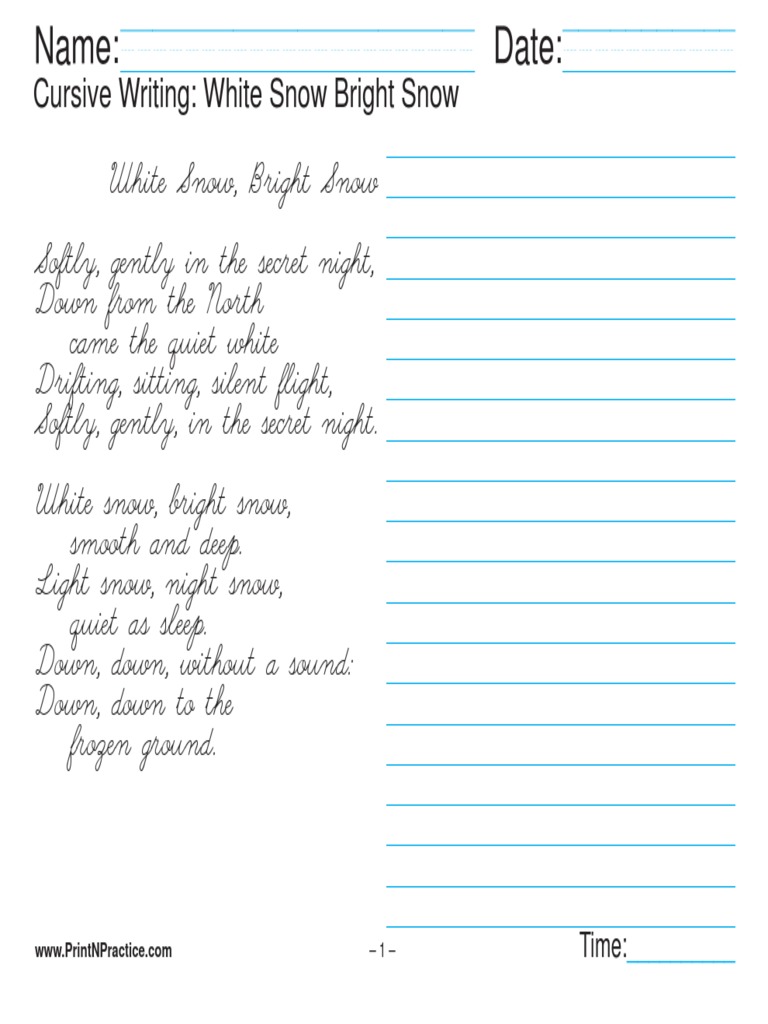 Name:
Date:
Cursive Writing: White Snow Bright Snow
White Snow, Bright Snow
Softly, gently in the secret night,
Down from the North
came the quiet white
Drifting, sitting, silent flight,
Softly, gently, in the secret night.
White snow, bright snow,
smooth and deep.
Light snow, night snow,
quiet as sleep.
Down, down, without a sound:
Down, down to the
frozen ground.
www.PrintNPractice.com
– 1 –
Time: